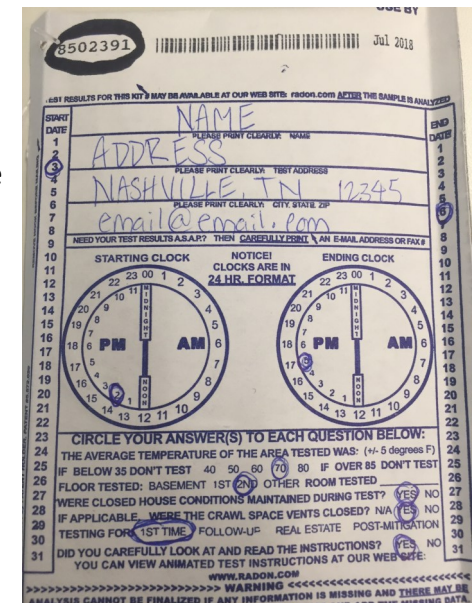 USE BY
8502391 Jul 2018
TEST RESULTS FOR THIS KIT # MAY BE AVAILABLE AT OUR WEB SITE: radon.com AFTER THE SAMPLE IS ANALYZED
START DATE
1
2
3
4
5
6
7
8
9
10
11
12
13
14
15
16
17
18
19
20
21
22
23
24
25
26
27
28
29
30
31
NAME
PLEASE PRINT CLEARLY: NAME
ADDRESS
PLEASE PRINT CLEARLY: TEST ADDRESS
NASHVILLE, TN 12345
PLEASE PRINT CLEARLY: CITY, STATE, ZIP
email@email.com
NEED YOUR TEST RESULTS A.S.A.P.? THEN CAREFULLY PRINT AN E-MAIL ADDRESS OR FAX #
END DATE
1
2
3
4
5
6
7
8
9
10
11
12
13
14
15
16
17
18
19
20
21
22
23
24
25
26
27
28
29
30
31
STARTING CLOCK
NOTICE!
CLOCKS ARE IN
24 HR. FORMAT
ENDING CLOCK
22 23 00 1 2 3 7 8 9 10 11 12 13 14 15 16 17 18 19 20 21
10 11 MIDNIGHT
PM AM
NOON
22 23 00 1 2 3 7 8 9 10 11 12 13 14 15 16 17 18 19 20 21
10 11 MIDNIGHT
PM AM
NOON
CIRCLE YOUR ANSWER(S) TO EACH QUESTION BELOW:
THE AVERAGE TEMPERATURE OF THE AREA TESTED WAS: (+/- 5 degrees F)
IF BELOW 35 DON'T TEST 40 50 60 70 80 IF OVER 85 DON'T TEST
FLOOR TESTED: BASEMENT 1ST 2ND OTHER ROOM TESTED
WERE CLOSED HOUSE CONDITIONS MAINTAINED DURING TEST? YES NO
IF APPLICABLE, WERE THE CRAWL SPACE VENTS CLOSED? N/A YES NO
TESTING FOR: 1ST TIME FOLLOW-UP REAL ESTATE POST-MITIGATION
DID YOU CAREFULLY LOOK AT AND READ THE INSTRUCTIONS? YES NO
YOU CAN VIEW ANIMATED TEST INSTRUCTIONS AT OUR WEB SITE:
WWW.RADON.COM
>>>>>>>>>>>>>>>>>>>> WARNING <<<<<<<<<<<<<<<<<<<<
ANALYSIS CANNOT BE FINALIZED IF ANY INFORMATION IS MISSING AND THERE MAY BE
MISSING DATA